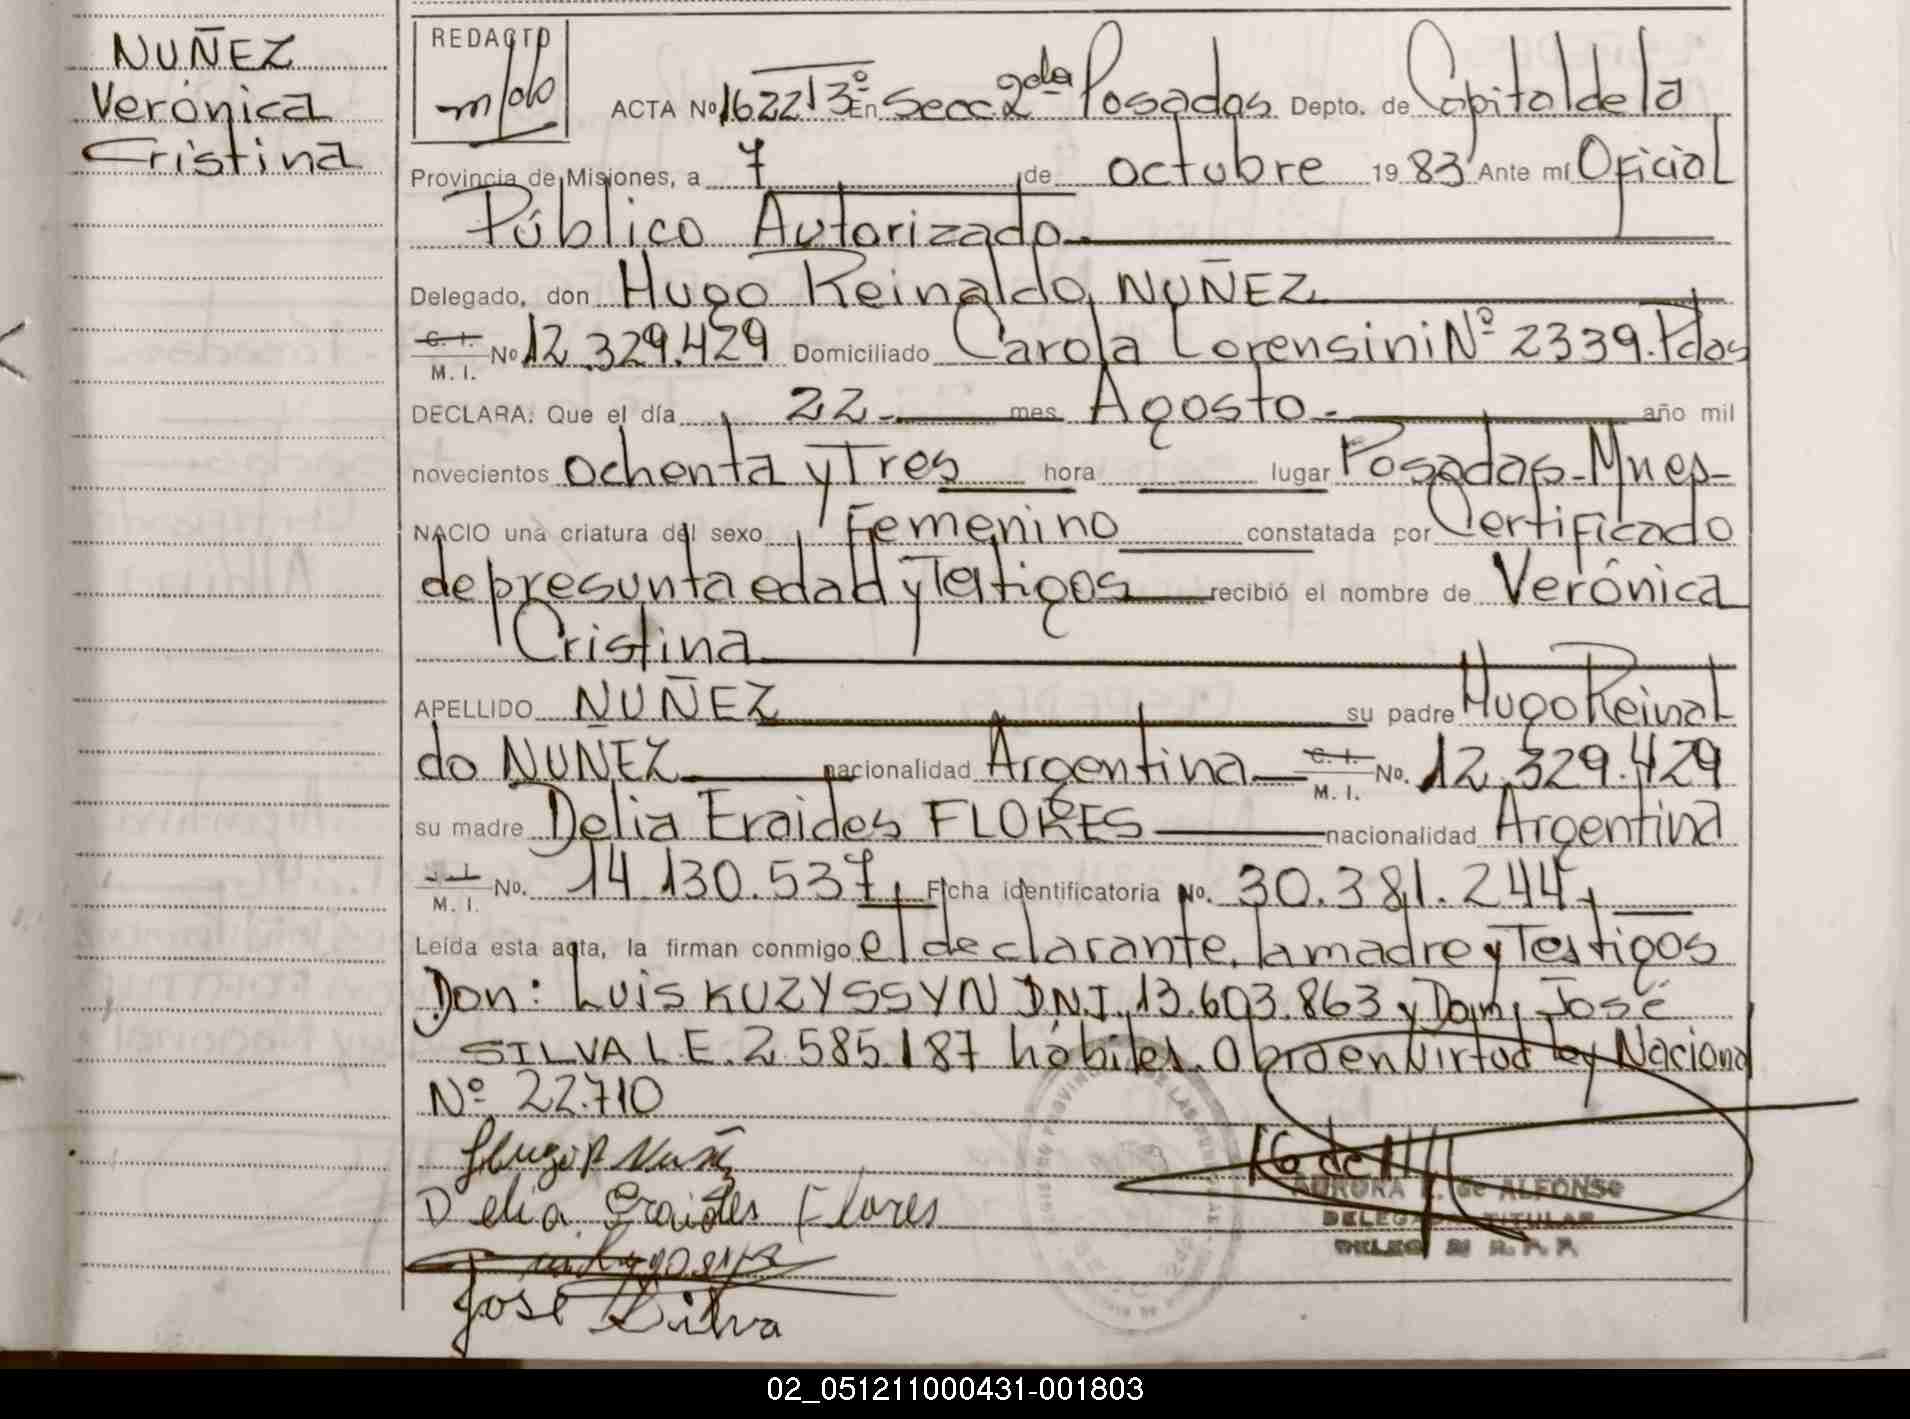 NUÑEZ
Verónica
Cristina
REDACTO
ACTA Nº 1622 T 3º En Secc. 2da Posadas Depto. de Capital de la
Provincia de Misiones, a 7 de octubre 1983 Ante mí Oficial
Público Autorizado.
Delegado, don Hugo Reinaldo NUÑEZ
C. I. M. I. Nº 12.329.429 Domiciliado Carola Lorensini Nº 2339. Pdas
DECLARA: Que el día 22 mes Agosto año mil
novecientos ochenta y Tres hora lugar Posadas - Mnes -
NACIO una criatura del sexo Femenino constatada por Certificado
de presunta edad y Testigos recibió el nombre de Verónica
Cristina
APELLIDO NUÑEZ su padre Hugo Reinal
do NUÑEZ nacionalidad Argentina C. I. M. I. No. 12.329.429
su madre Delia Eraides FLORES nacionalidad Argentina
M. I. No. 14.130.537 Ficha identificatoria No. 30.381.244
Leída esta acta, la firman conmigo el declarante, la madre y Testigos
Don: Luis KUZYSSYN DNI. 13.603.863 y Don, José
SILVA L.E. 2.585.187 hábiles. Obro en virtud ley Nacional
Nº 22.710
Hugo R Nuñez
Delia Eraides Flores
José Silva
AURORA de ALFONSO
DELEGADA TITULAR
02_051211000431-001803